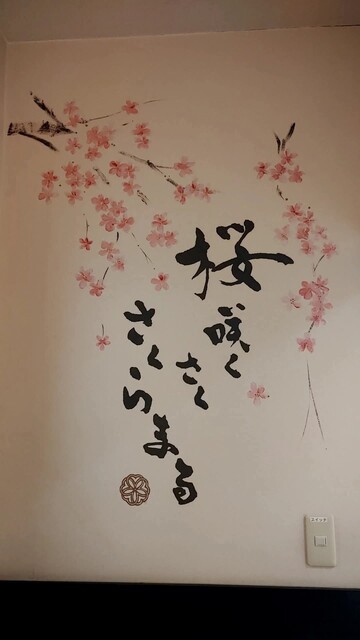 桜咲くさく
さくらまる